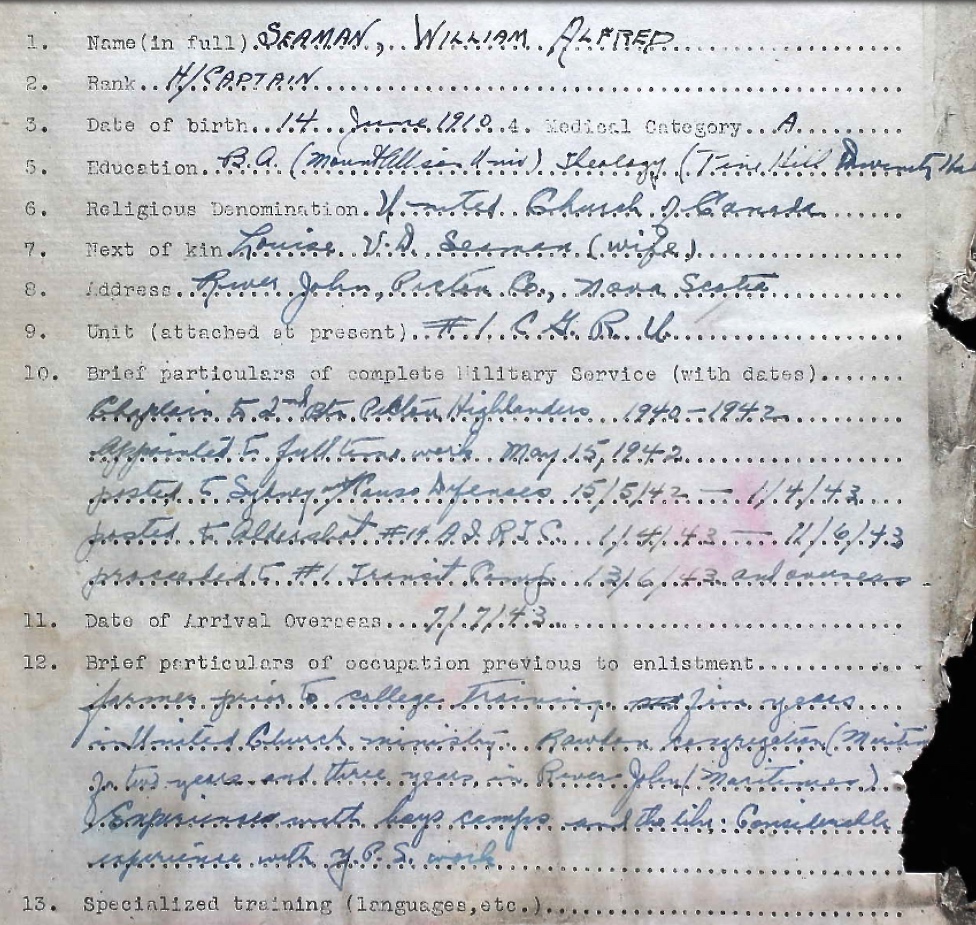 1. Name(in full).SEAMAN, WILLIAM ALFRED
2. Rank..H/CAPTAIN
3. Date of birth..14 June 1910.4. Medical Category..A
5. Education..B.A. (Mount Allison Univ) Theology (Pine Hill Divinity
6. Religious Denomination.United Church of Canada
7. Next of kin Louise V.D. Seaman (wife)
8. Address..River John, Pictou Co., Nova Scotia
9. Unit (attached at present).#1 C G R U
10. Brief particulars of complete Military Service (with dates)
Chaplain to 2nd Btn Pictou Highlanders 1940-1942
Appointed to full time work May 15, 1942
posted to Sydney Defenses 15/5/42 — 1/4/43
posted to Aldershot A.I.R.T.C. 1/4/43 — 12/6/43
proceeded to #1 Transit 13/6/43 and overseas
11. Date of Arrival Overseas....7/7/43
12. Brief particulars of occupation previous to enlistment
farmer prior to college training, five years
in United Church ministry. Rawdon congregation
for two years and three years in River John (Maritimes)
Experience with boys camps and the like. Considerable
experience with Y.P.S. work
13. Specialized training (languages,etc.)